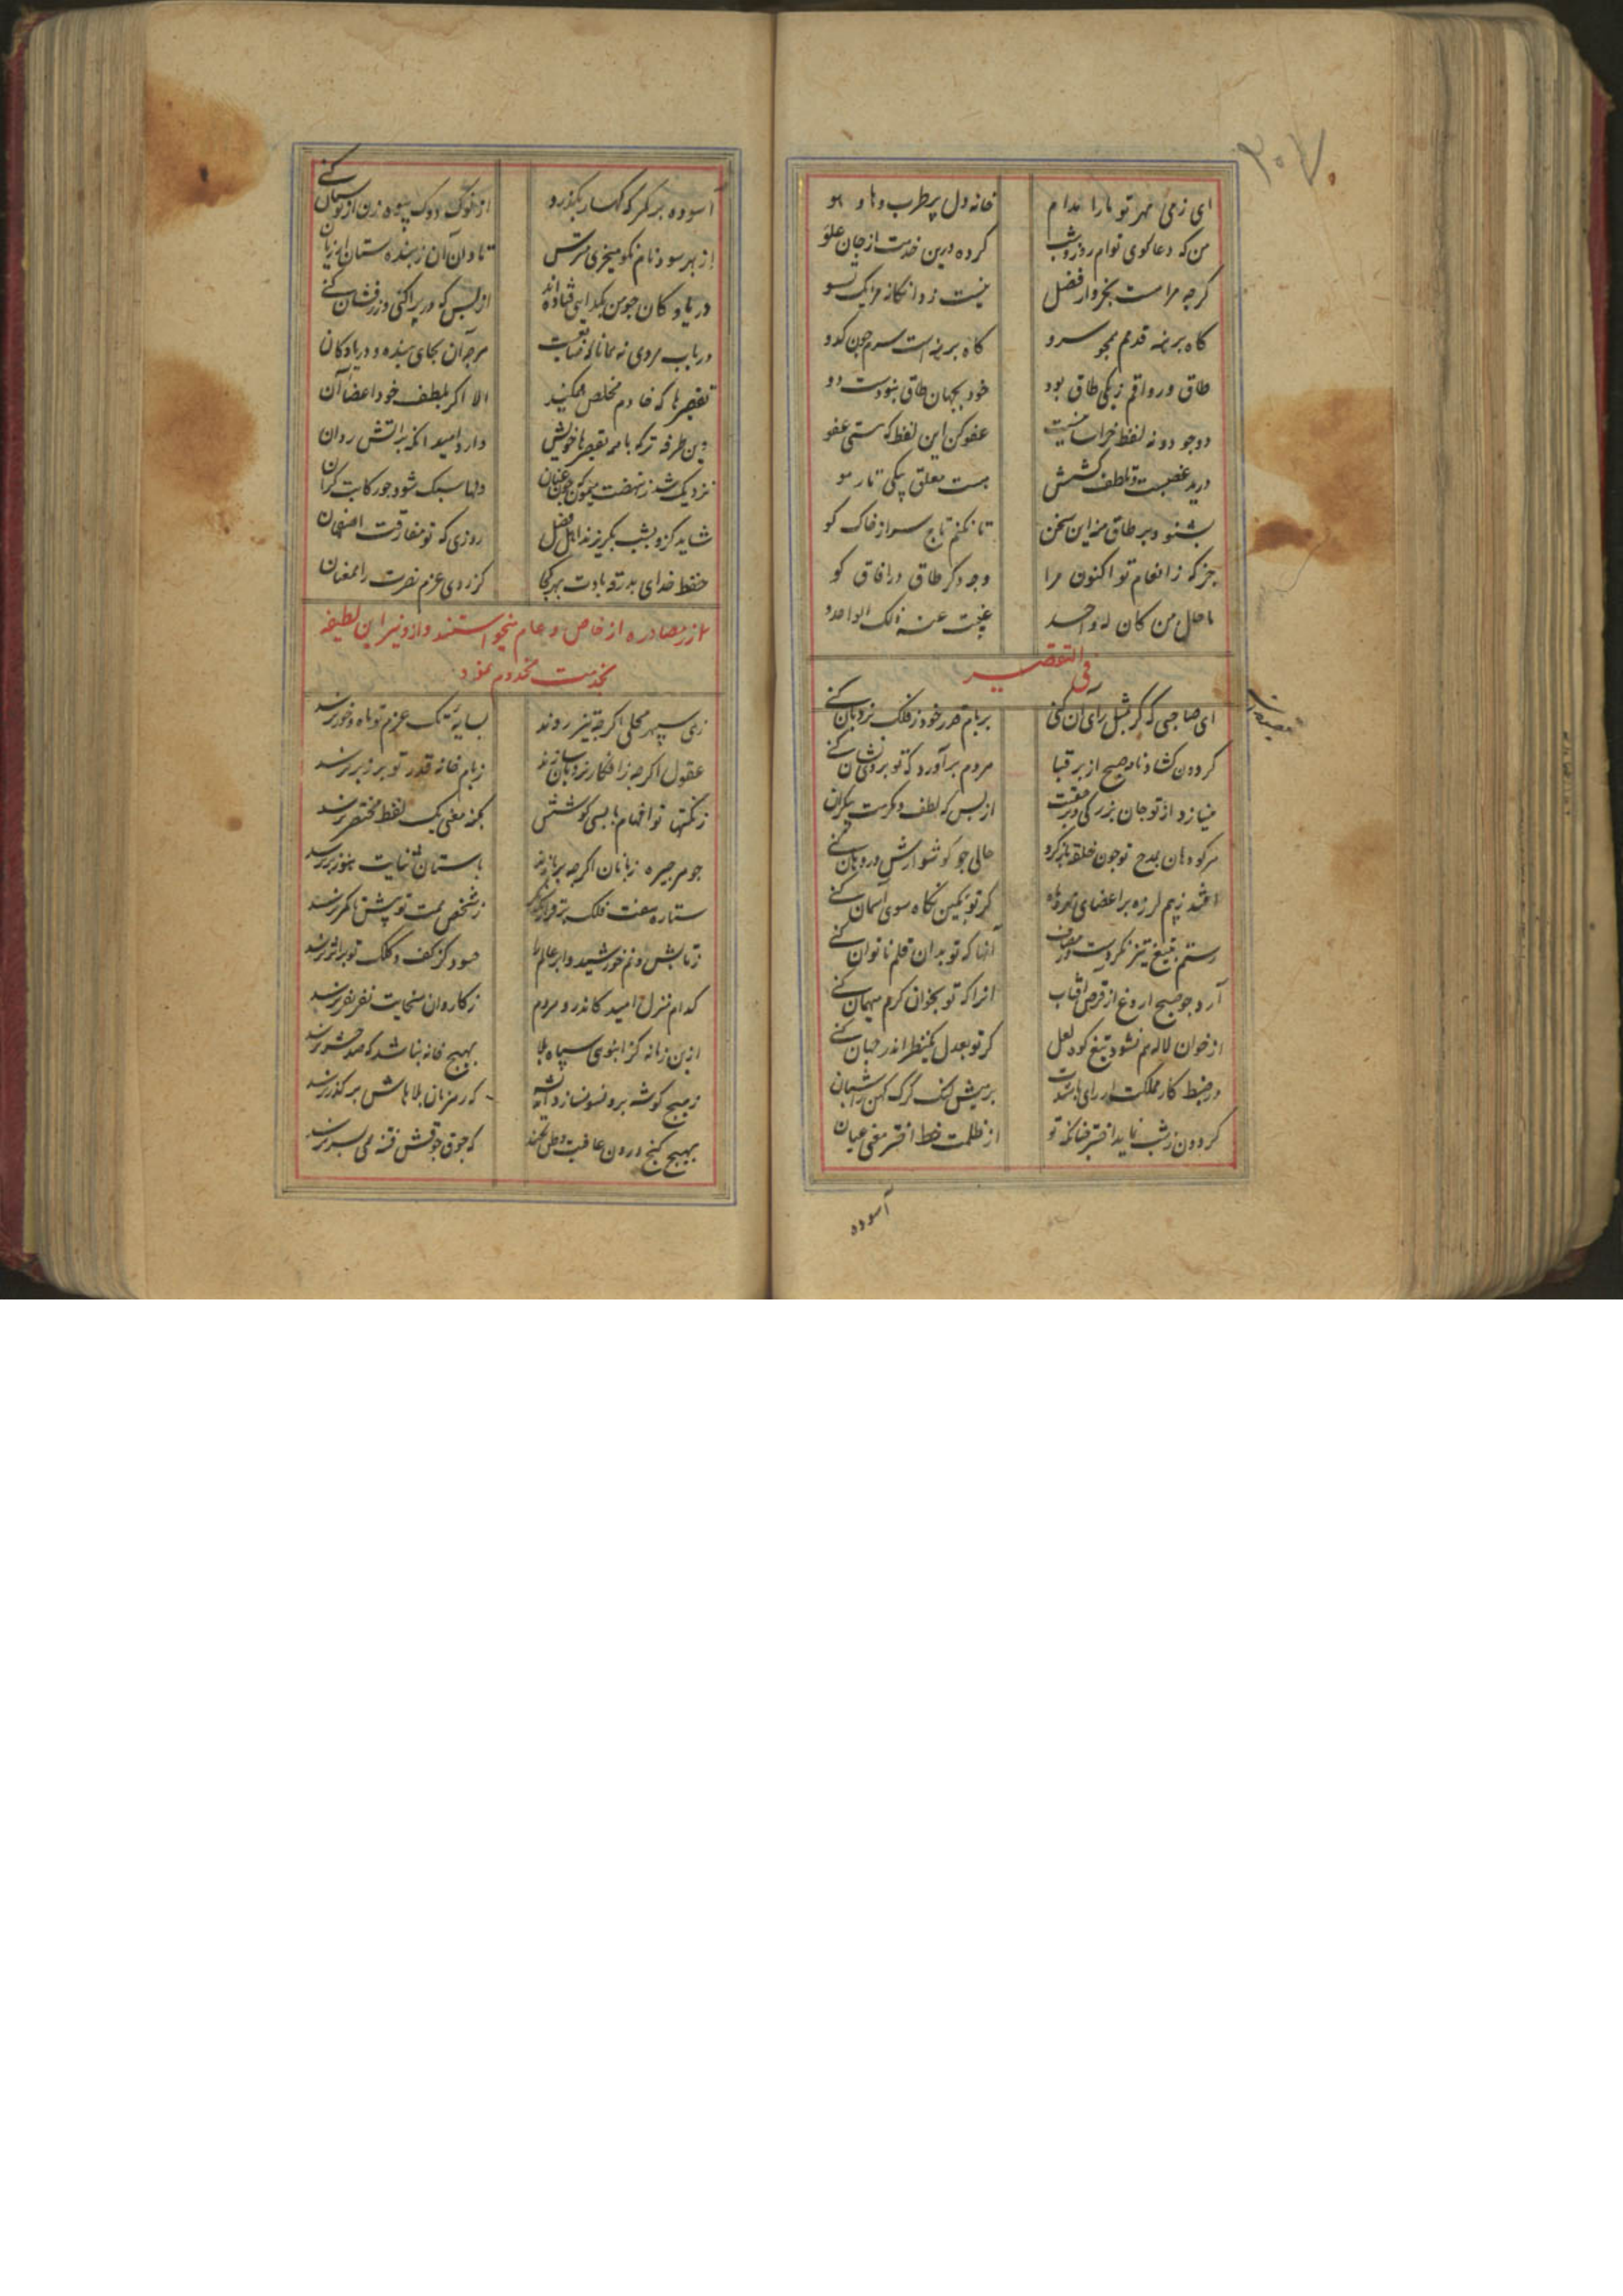 ۳۰۷
ای زمی مهر تو ما را مدام خانه دل پر طرب و های و هو
من که دعاگوی توام روز و شب کرده درین خدمت از جان علو
گرچه مراست بخروار فضل نیست ز دانگانه مرا یک تسو
گاه برهنه قدمم همچو سرو گاه برهنه است سرم چون کدو
طاق و رواقم ز یکی طاق بود خود بجهان طاق نبودست دو
دو چو دونه لفظ خراسانیست عفو کن این لفظ که هستی عفو
کشش هست معلق بیکی تار مو
بشنو و بر طاق منه این سخن تا نکنم تاج سر از خاک کو
جز که ز انعام تو اکنون مرا وجه دگر طاق در آفاق کو
ما حال من کان له واحد غیبت عنه ذلک الواحد و
فی التقصیر
ای صاحبی که گر بمثل رای آن کنی بر بام قدر خود ز فلک نردبان کنی
گردون گشاد نامه صبح از بر قبا مردم برآورد که تو بروی نشان کنی
مینازد از تو جان بزرگی از بس که لطف و مکرمت بیکران کنی
هر کو دهان بمدح تو چون حلقه باز کرد حالی چو گوشوارش در دهان کنی
افتد ز بیم لرزه بر اعضای گر تو بکین نگاه سوی آسمان کنی
رستم بتیغ تیز نکردست در مصاف آنها که تو بدان قلم ناتوان کنی
آرد چو صبح آروغ از قرص آفتاب آنرا که تو بخوان کرم میهمان کنی
از خون لاله هم نشود تیغ کوه لعل گر تو بعدل یک نظر اندر جهان کنی
در ضبط کار مملکت ار رای باشدت بر میش لنگ گرگ کهن را شبان
گردون ز شب نماید اختر چنانکه تو از ظلمت خط اختر معنی عیان
آسوده
آسوده بر گذر که گهسار بگذرد از نوک دوک بیوه زن
از بهر سود نام نکو میخری مترس تاوان آن ز بنده ستان
دریا و کان چو من بگدایی فتاده‌اند از بس که در پراکنی و زرفشان کنی
در باب مردی هرچ آن بجای بنده و دریا و کان
تقصیرها که خادم مخلص همیکند الا اگر بلطف خود اغضای آن
وین طرفه تر که با همه تقصیرهای خویش دارد امید آنکه براتش روان
نزدیک شد ز نهضت میمون چون عنان دلها سبک شود چو رکابت گران
شاید کزو بشب بگریزند اهل فضل روزی که تو مفارقت اصفهان
حفظ خدای بدرقه بادت بهر کجا کز روی عزم نصرت را همعنان
از مصادره از خاص و عام میخواستند و ازو نیز این لطیفه
بخدمت مخدوم نمود
زهی سپهر محلی اگرچه تیز روند بسایه تک عزم تو ماه و خور نرسند
عقول اگرچه ز افکار نردبان سازند ز بام خانه قدر تو بر زبر نرسند
ز نکتها تو افهام با بسی کوشش بکنه معنی یک لفظ مختصر نرسند
باستان ثنایت هنوز بر نرسد
ستاره هفت فلک ز شخص همت تو بیش تا کمر نرسند
ز تابش و نم خورشید و ابر حسود کز کف و کلک تو بر اثر نرسند
کدام منزل امید کاندرو مردم ز کاروان سخایت نفر نفر نرسند
ازین زمانه کز انبوهی سپاه بلا بهیچ خانه نباشد که صد حشر نرسند
ز هیچ گوشه برون که رهزنان بلاهاش بر گذر نرسند
بهیچ کنج درون عافیت وطن نکند که جوق جوقش فتنه همی بسر نرسند